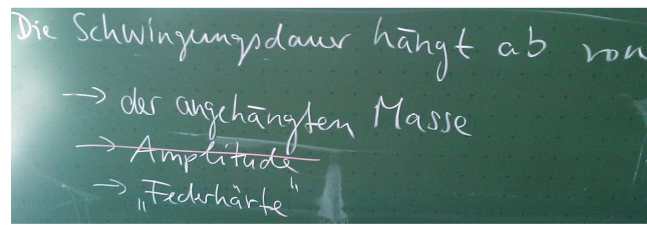 Die Schwingungsdauer hängt ab von
→ der angehängten Masse
→ Amplitude
→ „Federhärte"